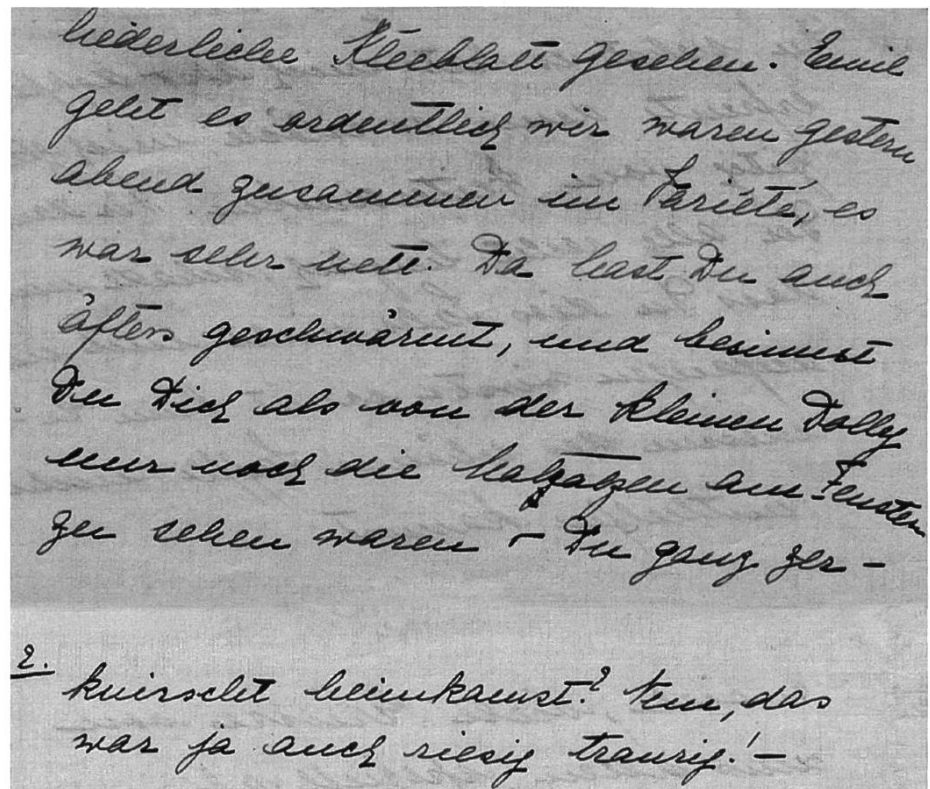 liederliche Kleeblatt gesehen. Emil
geht es ordentlich wir waren gestern
abend zusammen im Variété, es
war sehr nett. Da hast Du auch
öfters geschwärmt, und besinnst
Du Dich als von der kleinen Dolly
nur noch die am Fenster
zu sehen waren – Du ganz zer-
2.
knirscht heimkamst? Nun, das
war ja auch riesig traurig! –